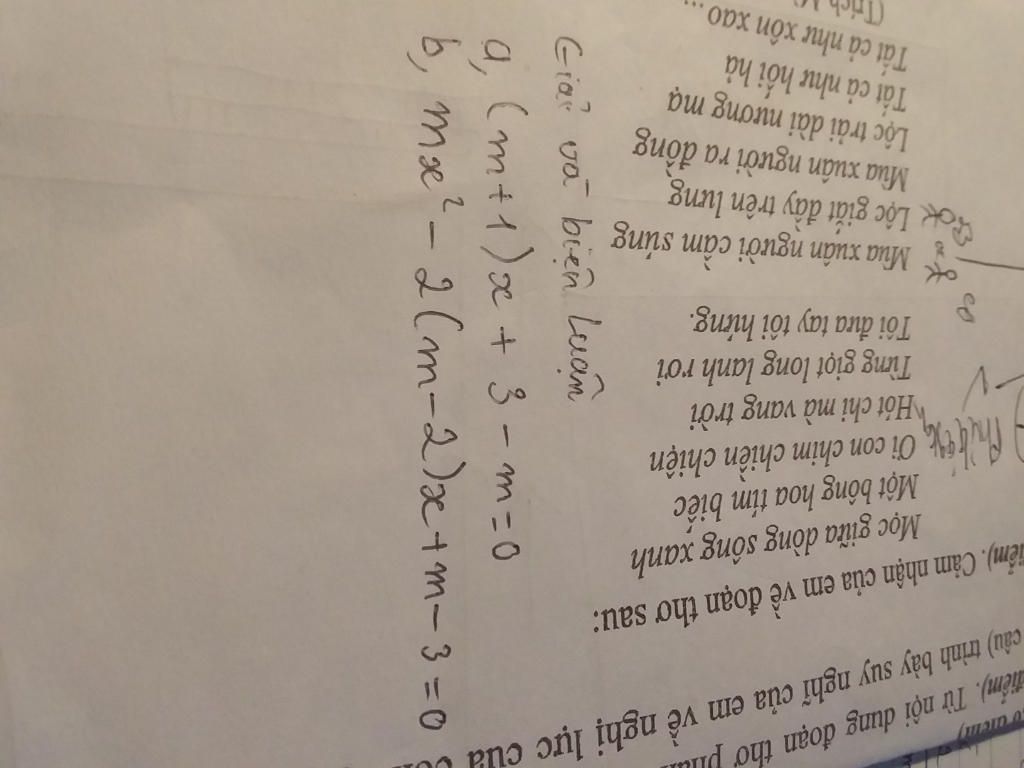 Giải và biện luận
a, (m+1)x + 3 - m = 0
b, mx² - 2(m-2)x + m - 3 = 0
câu) trình bày suy nghĩ của em về nghị lực của
Từ nội dung đoạn thơ
Cảm nhận của em về đoạn thơ sau:
Mọc giữa dòng sông xanh
Một bông hoa tím biếc
Ơi con chim chiền chiện
Hót chi mà vang trời
Từng giọt long lanh rơi
Tôi đưa tay tôi hứng.
Mùa xuân người cầm súng
Lộc giắt đầy trên lưng
Mùa xuân người ra đồng
Lộc trải dài nương mạ
Tất cả như hối hả
Tất cả như xôn xao...
(Trích